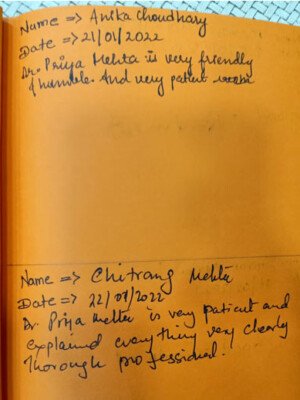 Name => Anika Choudhary
Date => 21/01/2022
Dr. Priya Mehta is very friendly
& humble. And very patient
Name => Chitrang Mehta
Date => 22/01/2022
Dr. Priya Mehta is very patient and
explained everything very clearly
Thorough professional.